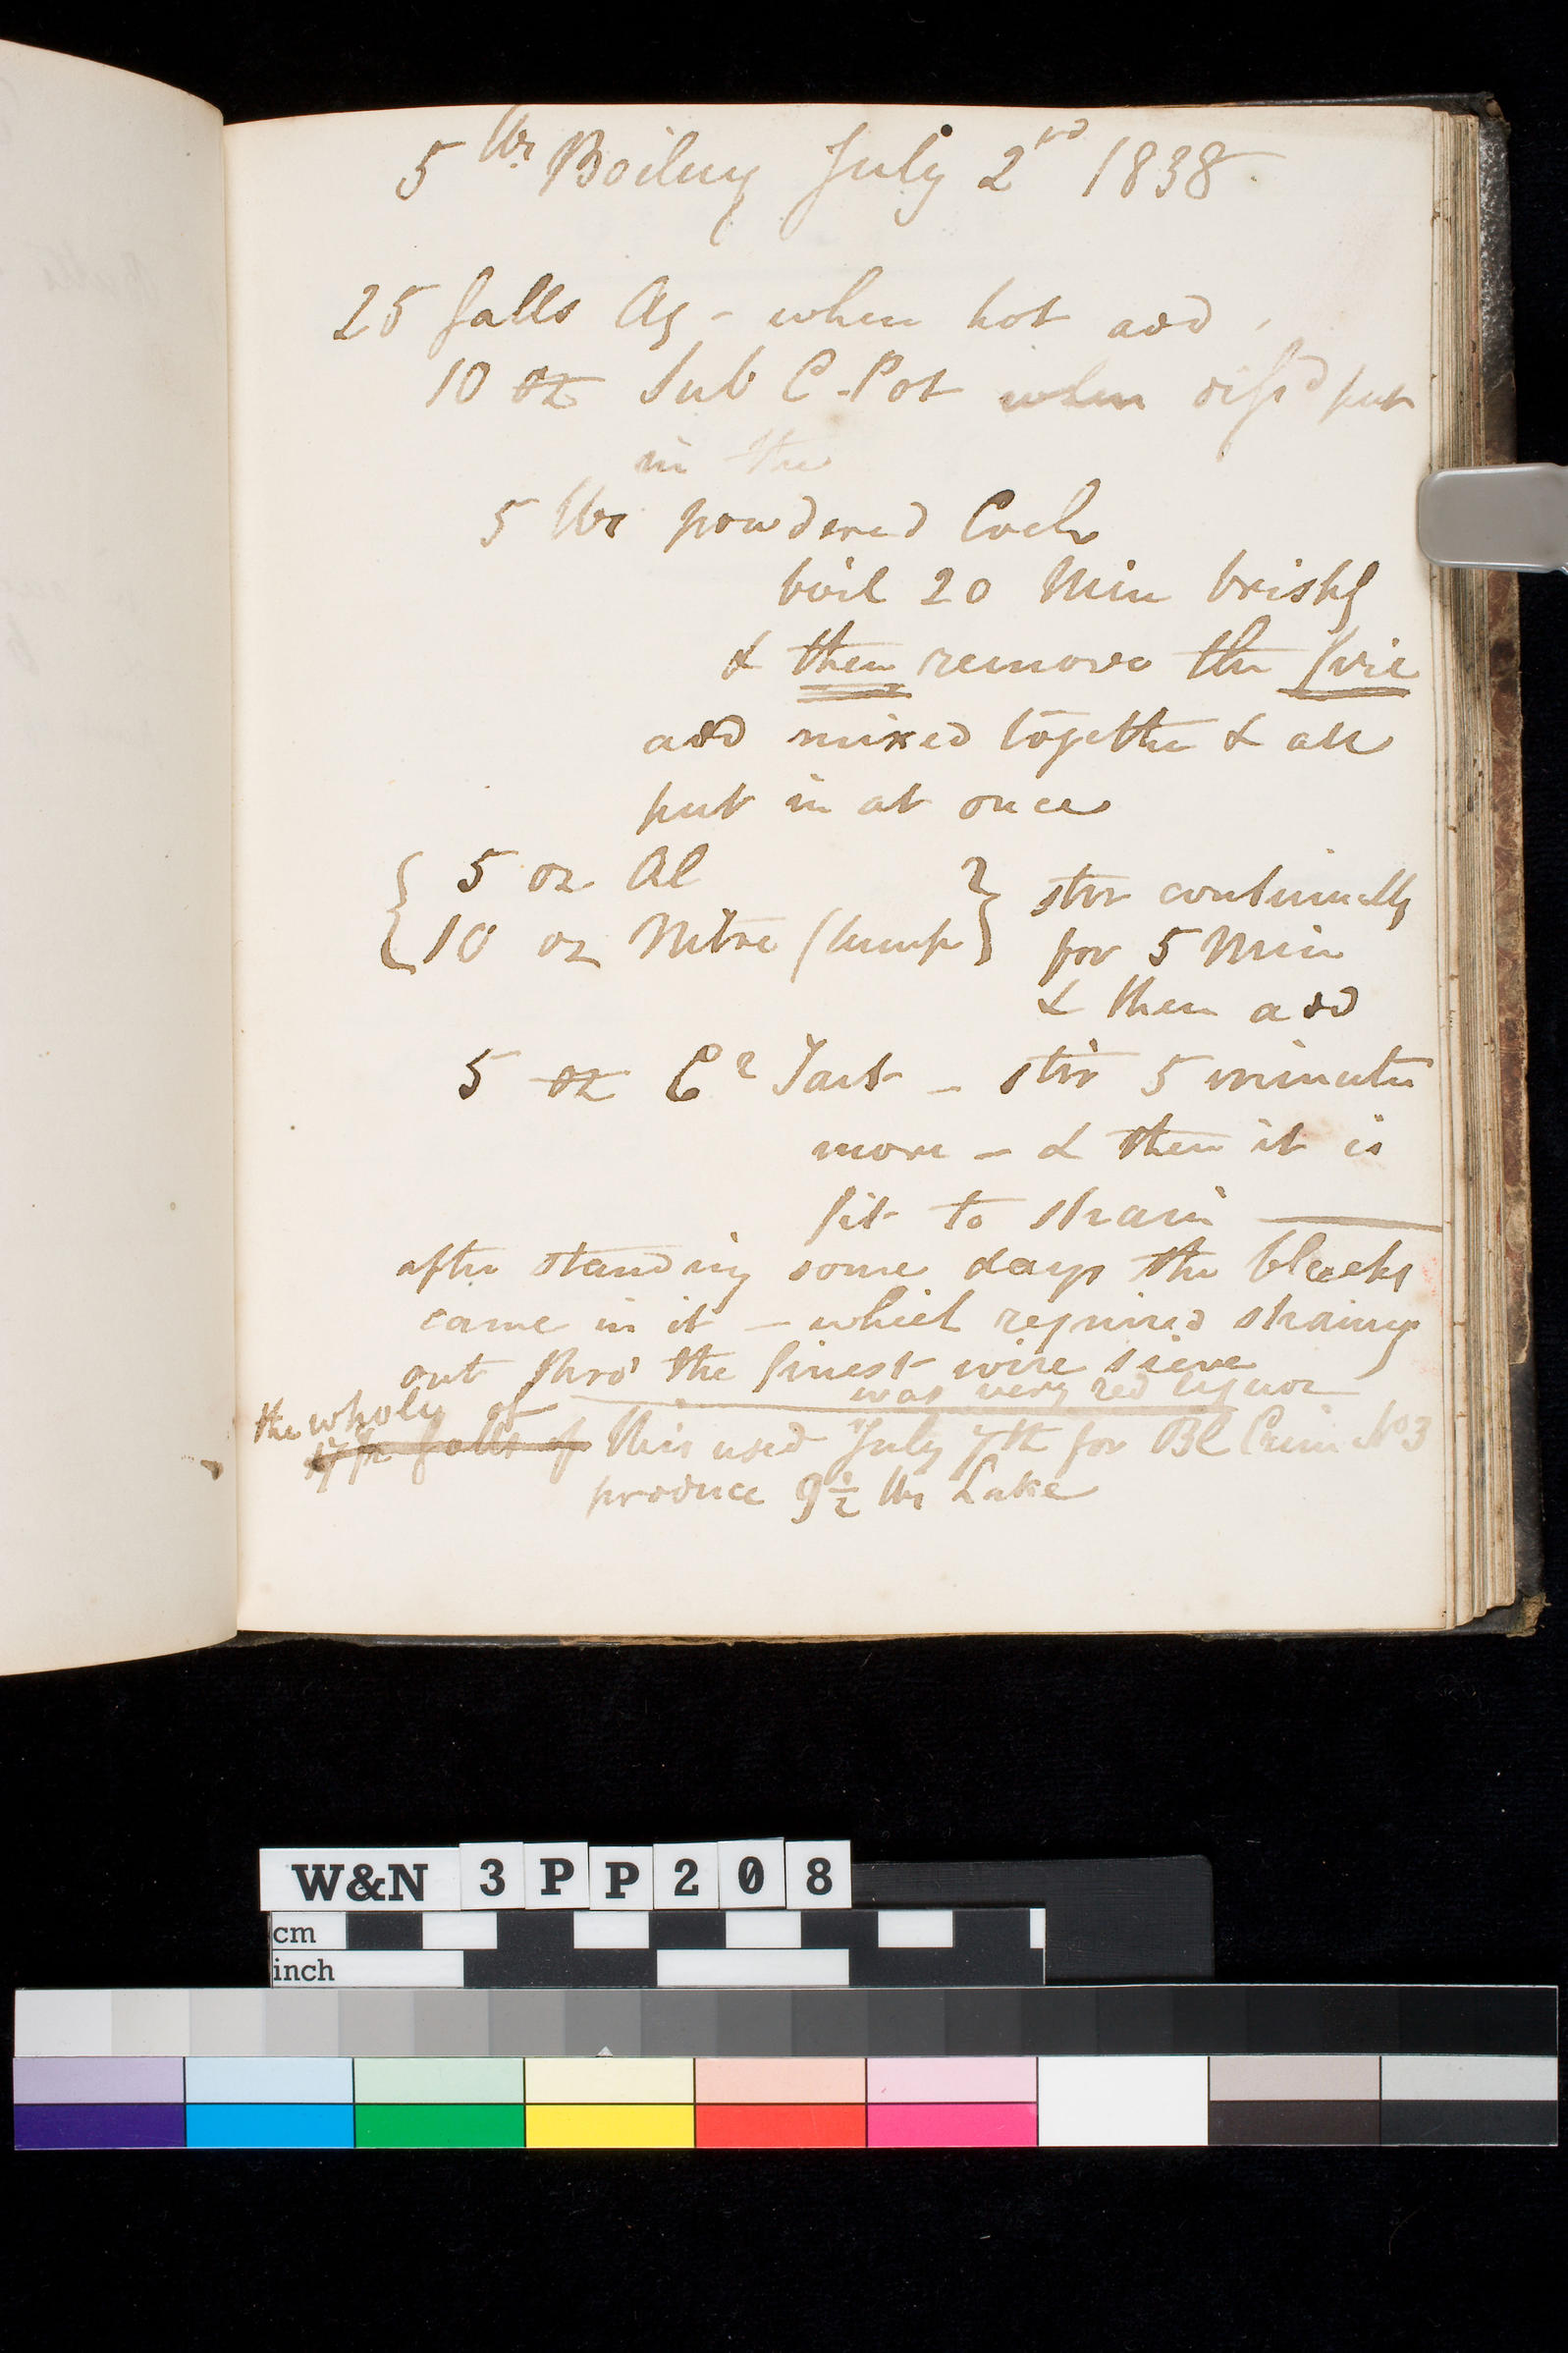 5 lbs. Boiling July 2nd 1838.
25 Galls Aq - when hot add
10 oz Sub C. Pot when diſsd put
in the
5 lbs powdered Coch
boil 20 Min briskly
& then remove the fire
add mixed together & all
put in at once
5 oz Al
10 oz Nitre (lump
stir continually
for 5 Min
& then add
5 oz Cr Tart - stir 5 minutes
more - & then it is
fit to strain
after standing some days the blacks
came in it - which required straining
out thro' the finest wire sieve
was very red liquor
the whole of
galls of this used July 7th for Bl Crim No 3
produce 9½ lbs Lake
W&N 3PP208
cm
inch